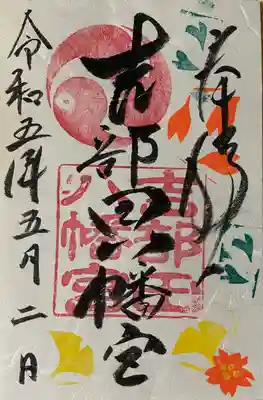 奉拝
吉部田八幡宮
令和五年五月二日
吉部田
八幡宮